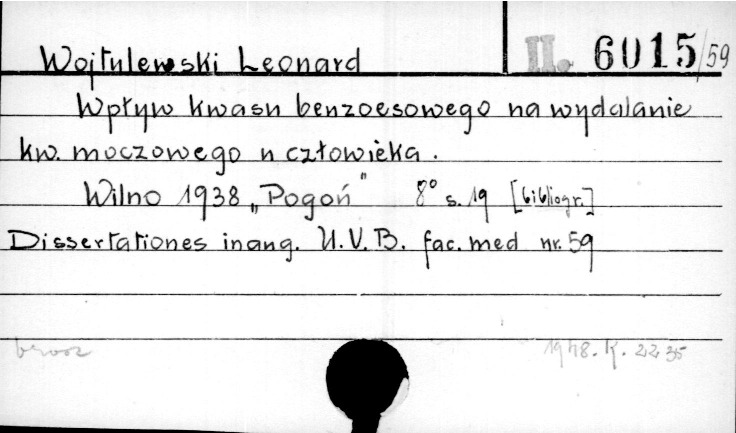 Wojtulewski Leonard II. 6015/59
Wpływ kwasu benzoesowego na wydalanie
kw. moczowego u człowieka.
Wilno 1938 „Pogoń" 8° s. 19 [bibliogr.]
Dissertationes inaug. U.V.B. fac. med nr. 59
brosz 1948. K. 2235